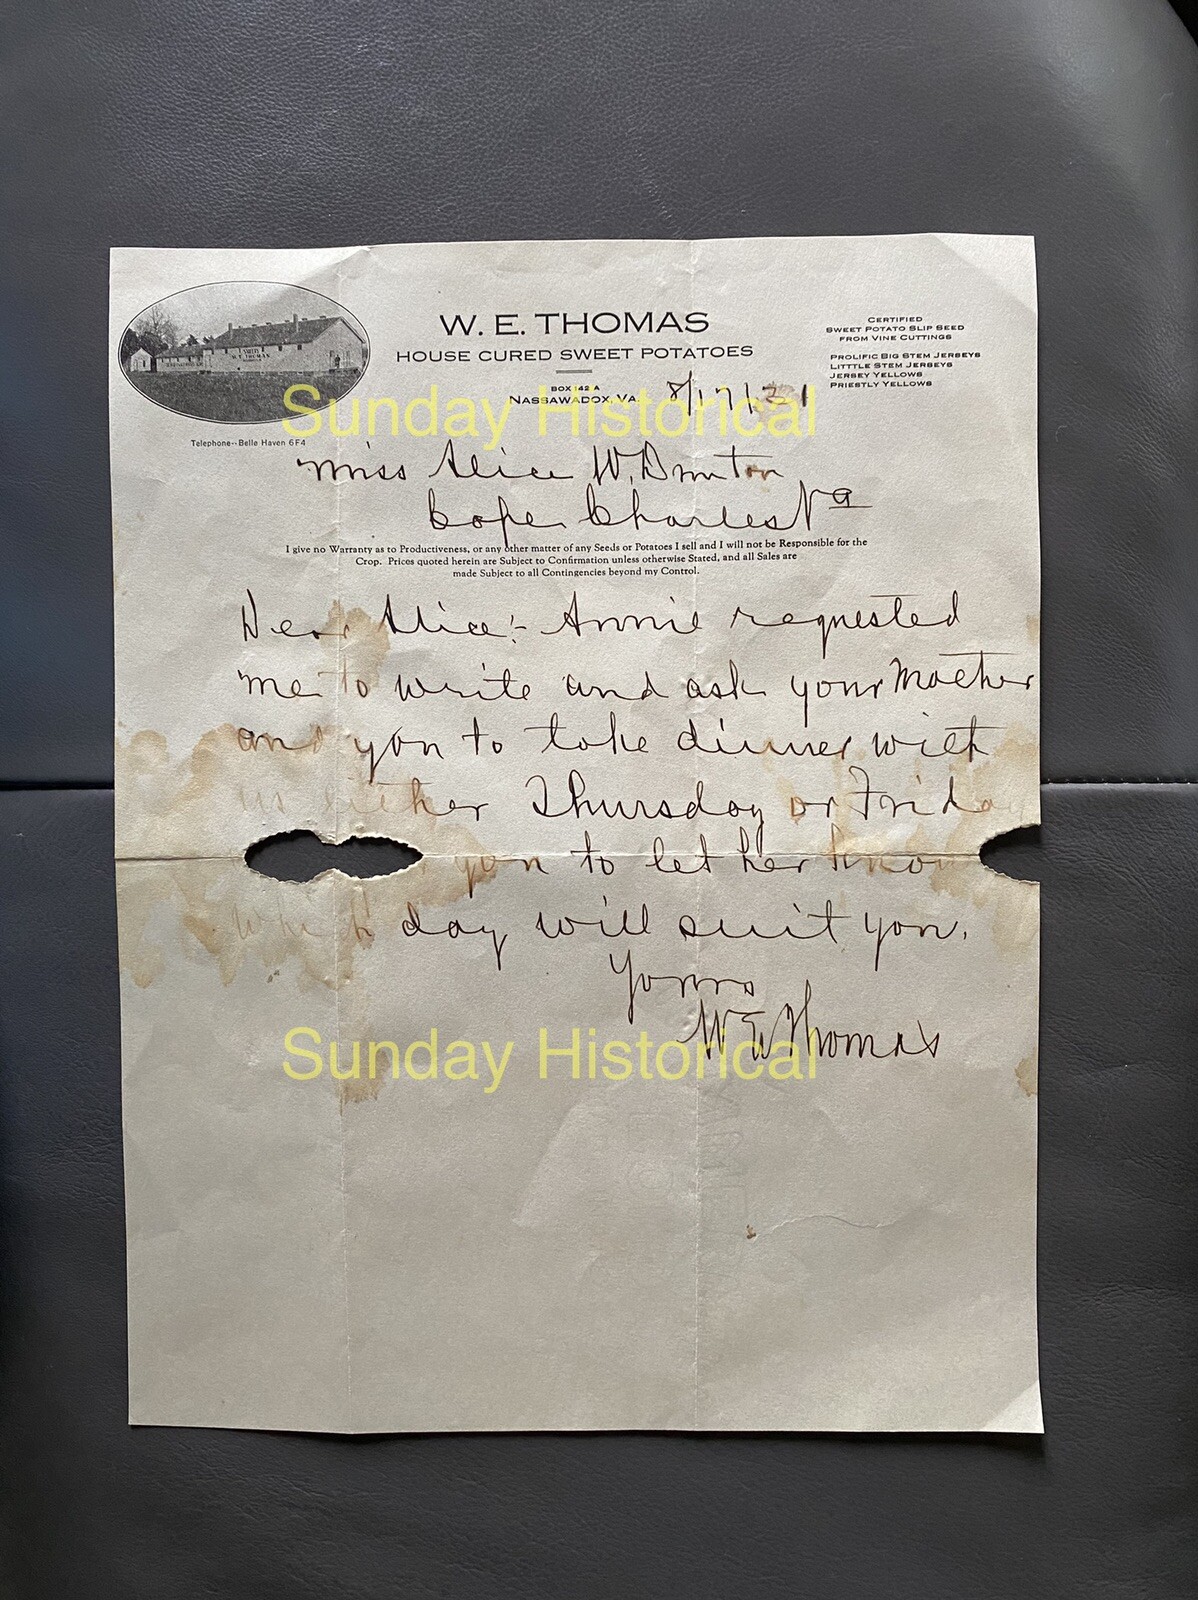 W. E. THOMAS
HOUSE CURED SWEET POTATOES
BOX 142 A
NASSAWADOX, VA. 8/17/31
CERTIFIED
SWEET POTATO SLIP SEED
FROM VINE CUTTINGS
PROLIFIC BIG STEM JERSEYS
LITTTLE STEM JERSEYS
JERSEY YELLOWS
PRIESTLY YELLOWS
W. E. THOMAS
Telephone--Belle Haven 6F4
Sunday Historical
Miss Alice W. Dunton
Cape Charles Va
I give no Warranty as to Productiveness, or any other matter of any Seeds or Potatoes I sell and I will not be Responsible for the
Crop. Prices quoted herein are Subject to Confirmation unless otherwise Stated, and all Sales are
made Subject to all Contingencies beyond my Control.
Dear Alice:- Annie requested
me to write and ask your Mother
and you to take dinner with
us either Thursday or Friday
you to let her know
which day will suit you.
Yours
W E Thomas
Sunday Historical